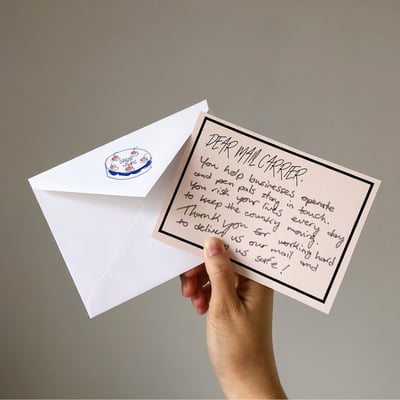 DEAR MAIL CARRIER,
You help businesses operate
and pen pals stay in touch.
You risk your lives every day
to keep the country moving.
Thank you for working hard
to deliver us our mail and
us safe!